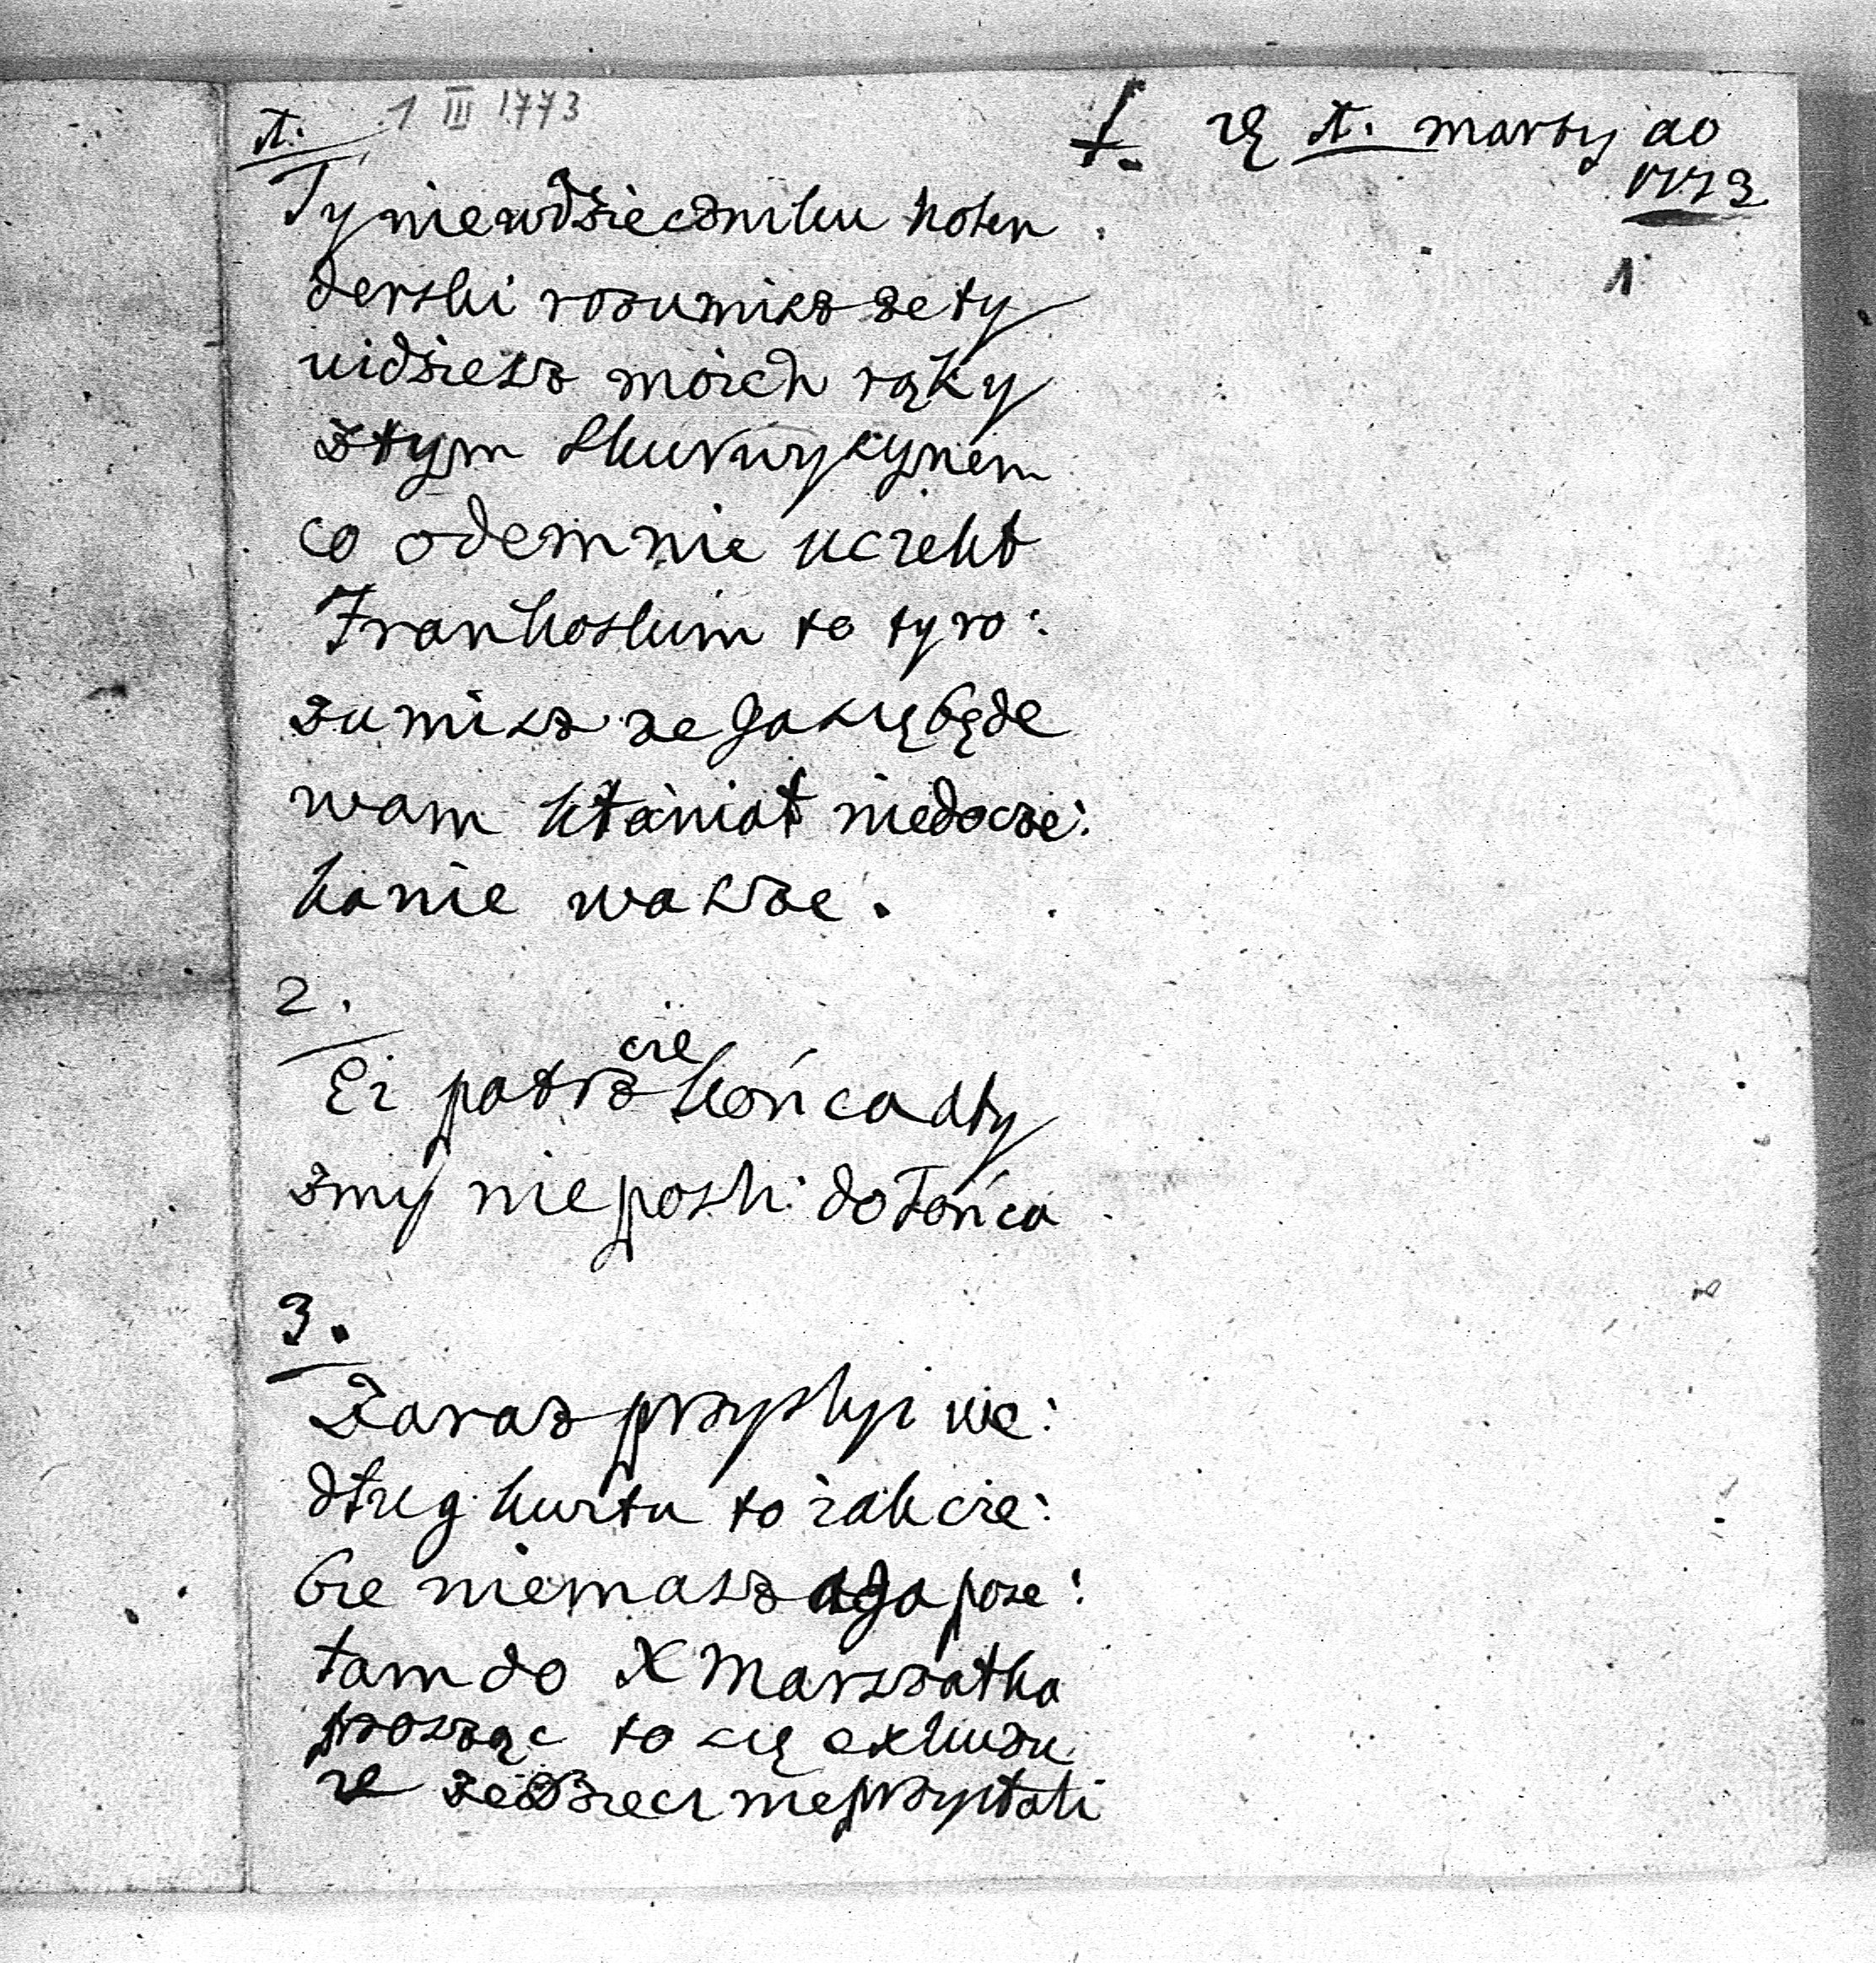 1. 1 III 1773
†. rę 1. marty ao
1773
1
Ty niewdzieczniku holen
derski rozumisz ze ty
uidziesz moich rąky
ztym skurwysynem
co odemnie uczekł
Frankoskim to ty ro:
zumisz ze ja się będe
wam kłaniał niedocze:
kanie wasze.
2.
Ei patrz cie końca aty
zmy nie posli do tońca
3.
Zaraz przyslyi we:
dług kurtu to iak cie:
bie niemasz a ja pose:
łam do X Marszałka
prosząc to się exkuzu
ie ze dzieci nieprzysłali